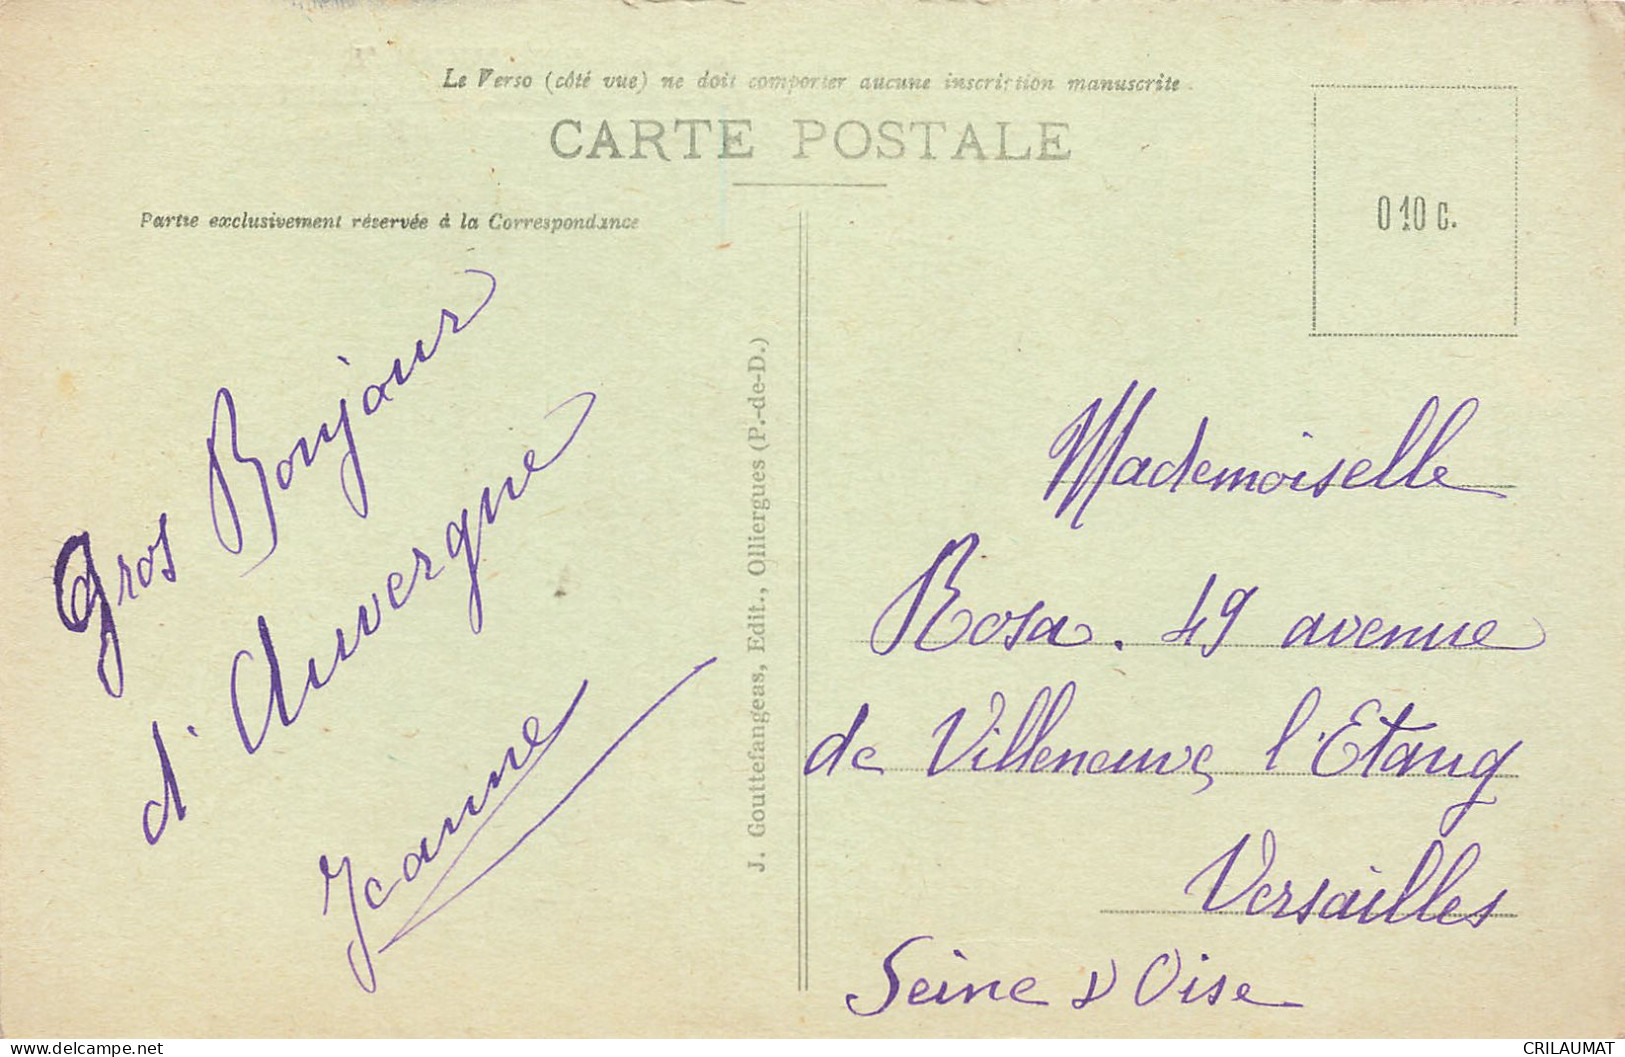 Le Verso (côté vue) ne doit comporter aucune inscription manuscrite.
CARTE POSTALE
Partie exclusivement réservée à la Correspondance
010 c.
Gros Bonjour
d'Auvergne
Jeanne
J. Gouttefangeas, Edit., Olliergues (P.-de-D.)
Mademoiselle
Rosa. 49 avenue
de Villeneuve l'Etang
Versailles
Seine & Oise
www.delcampe.net
CRILAUMAT